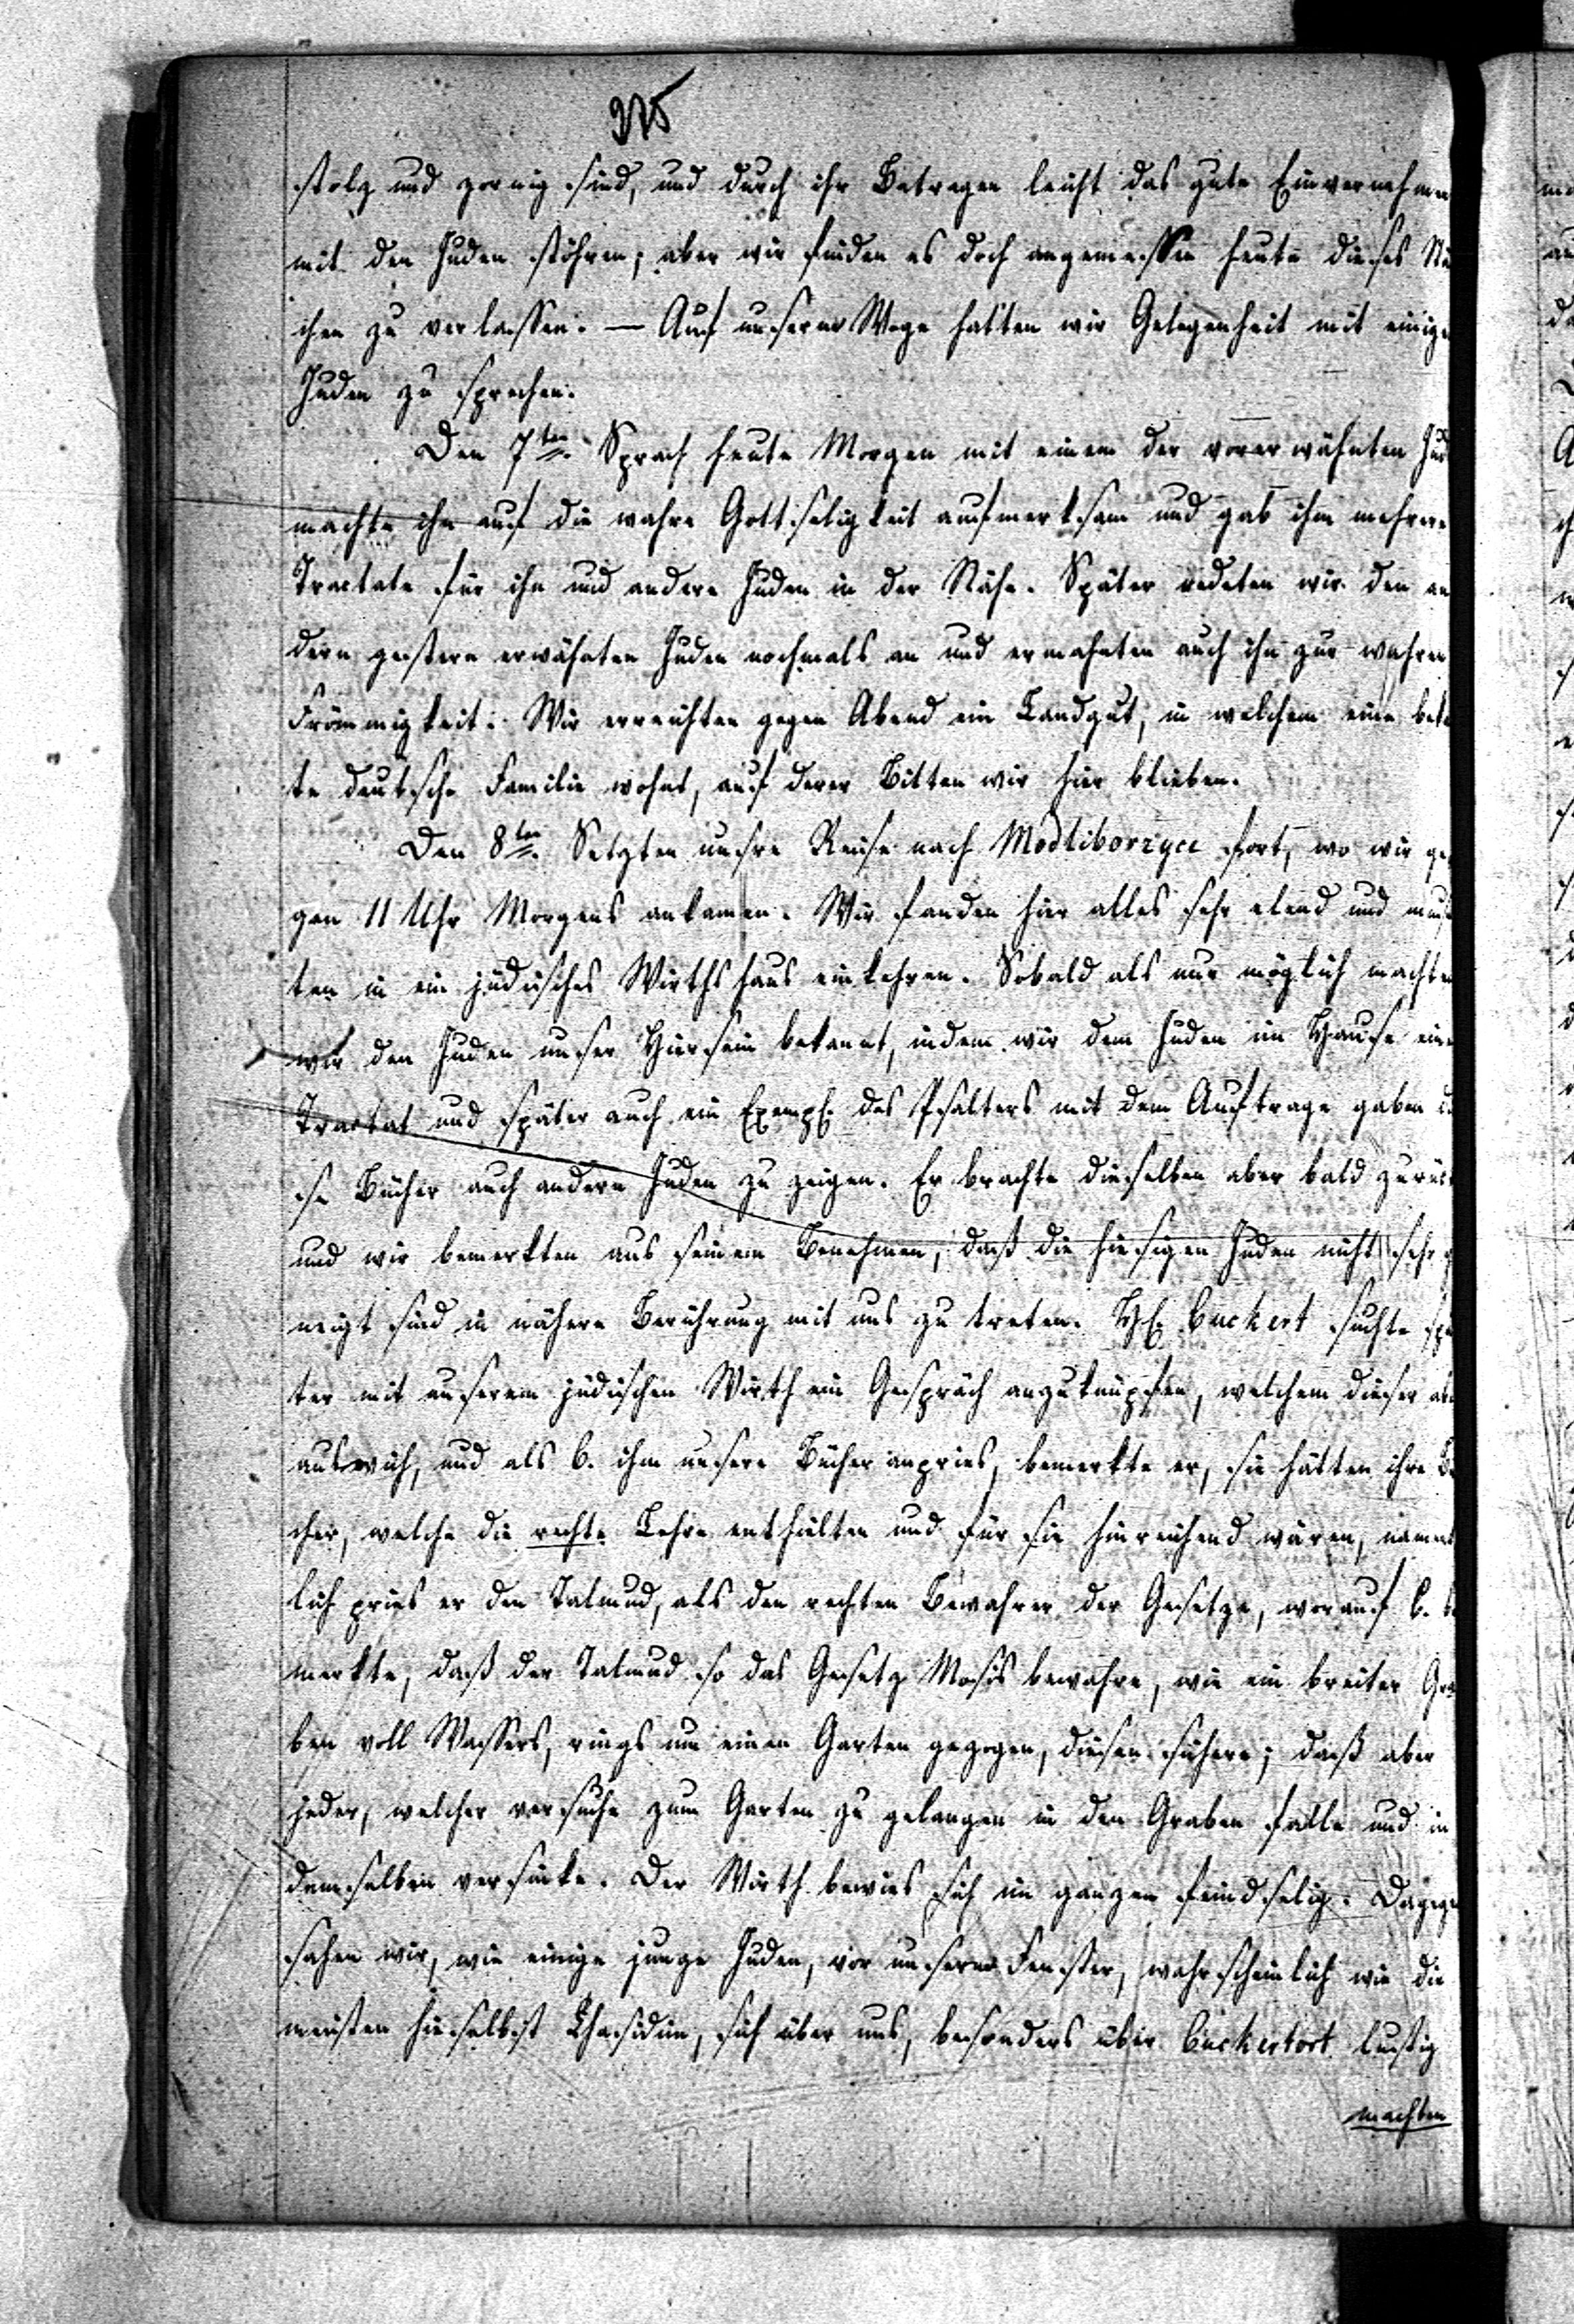 375
stolz und zornig sind, und durch ihr Betragen leicht das gute Einvernehmen
mit den Juden stöhren; aber wir finden es doch angemessen heute dieses
chen zu verlassen. — Auf unserm Wege hatten wir Gelegenheit mit einigen
Juden zu sprechen.
Den 7ten. Sprach heute Morgen mit einem der vorerwähnten Jud
machte ihn auf die wahre Gottseligkeit aufmerksam und gab ihm mehrere
Tractate für ihn und andere Juden in der Nähe. Später redeten wir den an
dern gestern erwähnten Juden nochmals an und ermahnten auch ihn zur wahren
Frömmigkeit. Wir erreichten gegen Abend ein Landgut, in welchem eine bek
te deutsche Familie wohnt, auf derer Bitten wir hier blieben.
Den 8ten. Setzten unsre Reise nach Modliborzyce fort, wo wir ge
gen 11 Uhr Morgens ankamen. Wir fanden hier alles sehr elend und muß
ten in ein jüdisches Wirthshaus einkehren. Sobald als nur möglich machten
wir den Juden unser Hiersein bekannt, indem wir dem Juden im Hause eine
Tractat und später auch ein Exempl. des Psalters mit dem Auftrage gaben di
se Bücher auch andern Juden zu zeigen. Er brachte dieselben aber bald zurück
und wir bemerkten aus seinem Benehmen, daß die hiesigen Juden nicht sehr g
neigt sind in nähere Berührung mit uns zu treten. H. Cuckert suchte spä
ter mit unserem jüdischen Wirth ein Gespräch anzuknüpfen, welchem dieser abe
auswich, und als C. ihm unsere Bücher anpries, bemerkte er, sie hätten ihre Bü
cher, welche die rechte Lehre enthielten und für sie hinreichend wären, nament
lich pries er den Talmud, als den rechten Bewahrer der Gesetze, worauf C. be
merkte, daß der Talmud so das Gesetz Mosis bewahre, wie ein breiter Gra
ben voll Wassers, rings um einen Garten gezogen, diesen sichere; daß aber
jeder, welcher versuche zum Garten zu gelangen in den Graben falle und in
demselben versinke. Der Wirth bewies sich im ganzen feindselig. Dagegen
sahen wir, wie einige junge Juden, vor unserm Fenster, wahrscheinlich wie die
meisten hieselbst Chasidim, sich über uns, besonders über Cuckertort lustig
machten